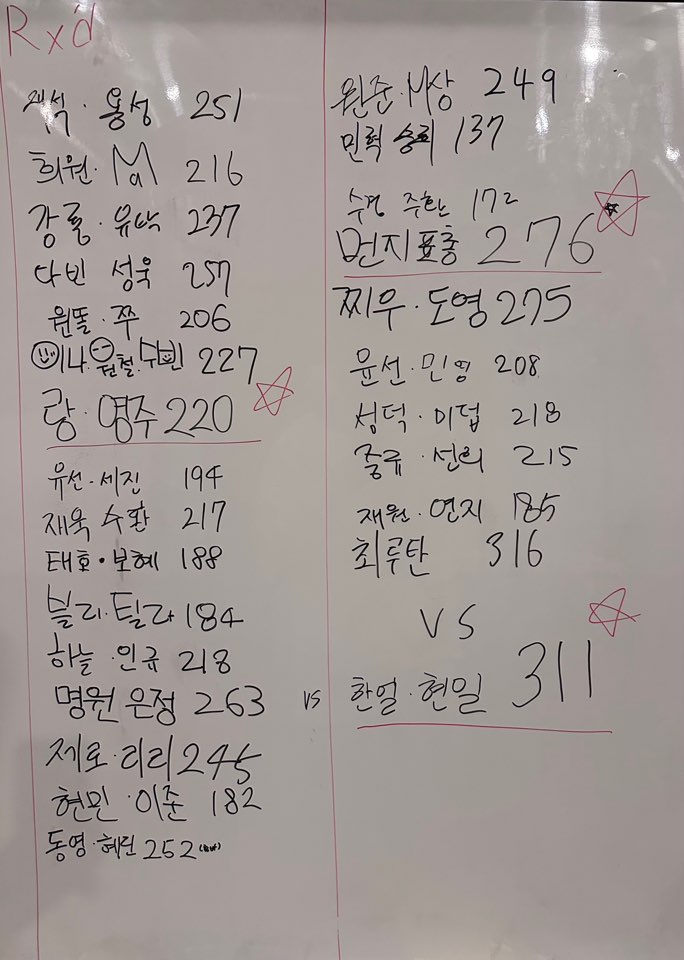 Rx'd
재석 · 용성 251
희원 · Ma 216
강룡 · 유낙 237
다빈 성욱 257
원똘 · 쭈 206
이나 · 원철 · 수빈 227
랑 · 영주 220
유선 · 세진 194
재욱 수환 217
태호 · 보혜 188
블리 · 틸라 184
하늘 · 인규 218
명원 은정 263 vs
제로 · 리리 245
현민 · 이준 182
동영 · 혜린 252
완준 · M상 249
민혁 승희 137
수경 주한 172
먼지 표총 276
찌우 · 도영 275
윤선 · 민영 208
성덕 · 미덥 218
중규 · 선희 215
재원 · 연지 185
최루탄 316
VS
한얼 · 현일 311